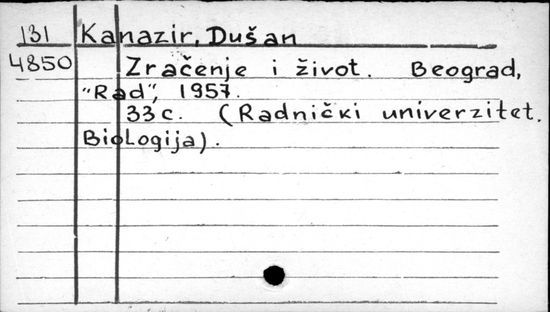 131 Kanazir, Dušan
4850 Zračenje i život. Beograd,
"Rad", 1957.
33 c. (Radnički univerzitet.
Biologija).